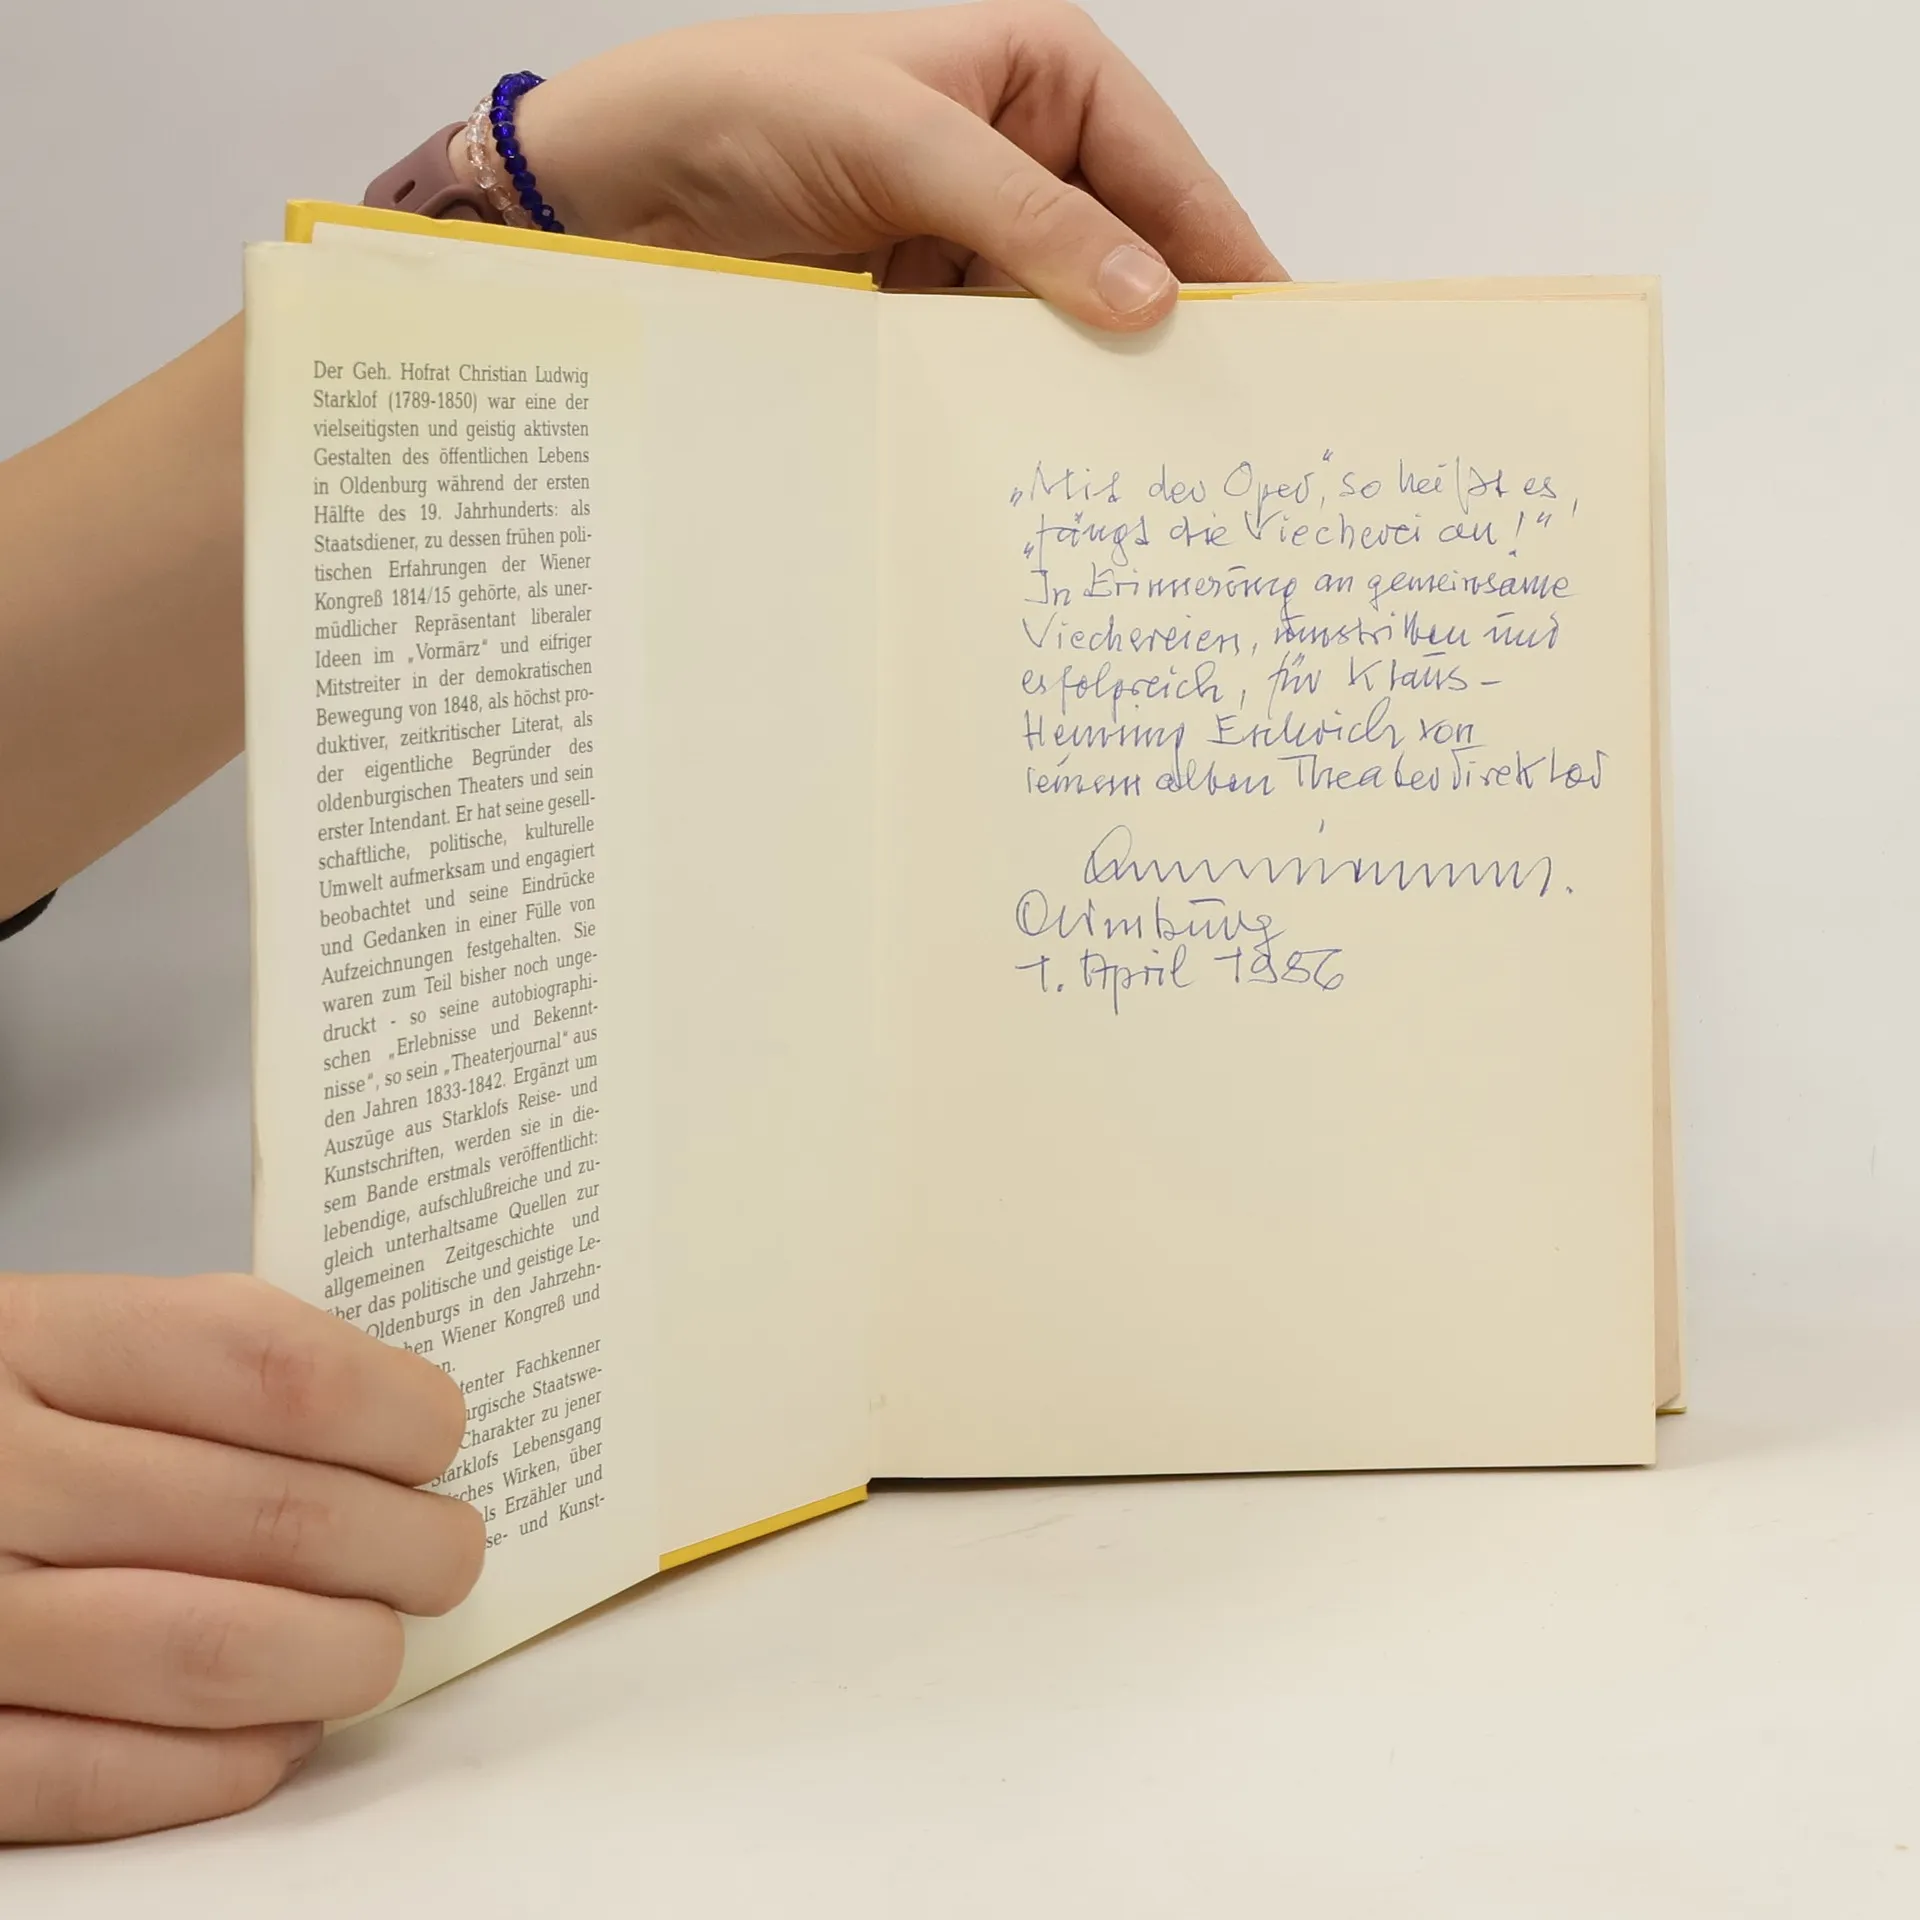 Der Geh. Hofrat Christian Ludwig
Starklof (1789-1850) war eine der
vielseitigsten und geistig aktivsten
Gestalten des öffentlichen Lebens
in Oldenburg während der ersten
Hälfte des 19. Jahrhunderts: als
Staatsdiener, zu dessen frühen poli-
tischen Erfahrungen der Wiener
Kongreß 1814/15 gehörte, als uner-
müdlicher Repräsentant liberaler
Ideen im „Vormärz“ und eifriger
Mitstreiter in der demokratischen
Bewegung von 1848, als höchst pro-
duktiver, zeitkritischer Literat, als
der eigentliche Begründer des
oldenburgischen Theaters und sein
erster Intendant. Er hat seine gesell-
schaftliche, politische, kulturelle
Umwelt aufmerksam und engagiert
beobachtet und seine Eindrücke
und Gedanken in einer Fülle von
Aufzeichnungen festgehalten. Sie
waren zum Teil bisher noch unge-
druckt - so seine autobiographi-
schen „Erlebnisse und Bekennt-
nisse“, so sein „Theaterjournal“ aus
den Jahren 1833-1842. Ergänzt um
Auszüge aus Starklofs Reise- und
Kunstschriften, werden sie in die-
sem Bande erstmals veröffentlicht:
lebendige, aufschlußreiche und zu-
gleich unterhaltsame Quellen zur
allgemeinen Zeitgeschichte und
über das politische und geistige Le-
Oldenburgs in den Jahrzehn-
hen Wiener Kongreß und
n.
tenter Fachkenner
urgische Staatswe-
Charakter zu jener
Starklofs Lebensgang
isches Wirken, über
ls Erzähler und
se- und Kunst-
„Mit der Oper“, so heißt es,
„fängt die Viecherei an!“
In Erinnerung an gemeinsame
Viechereien, umstritten und
erfolgreich, für Klaus-
Henning von
seinem alten Theaterdirektor
Oldenburg
1. April 1986